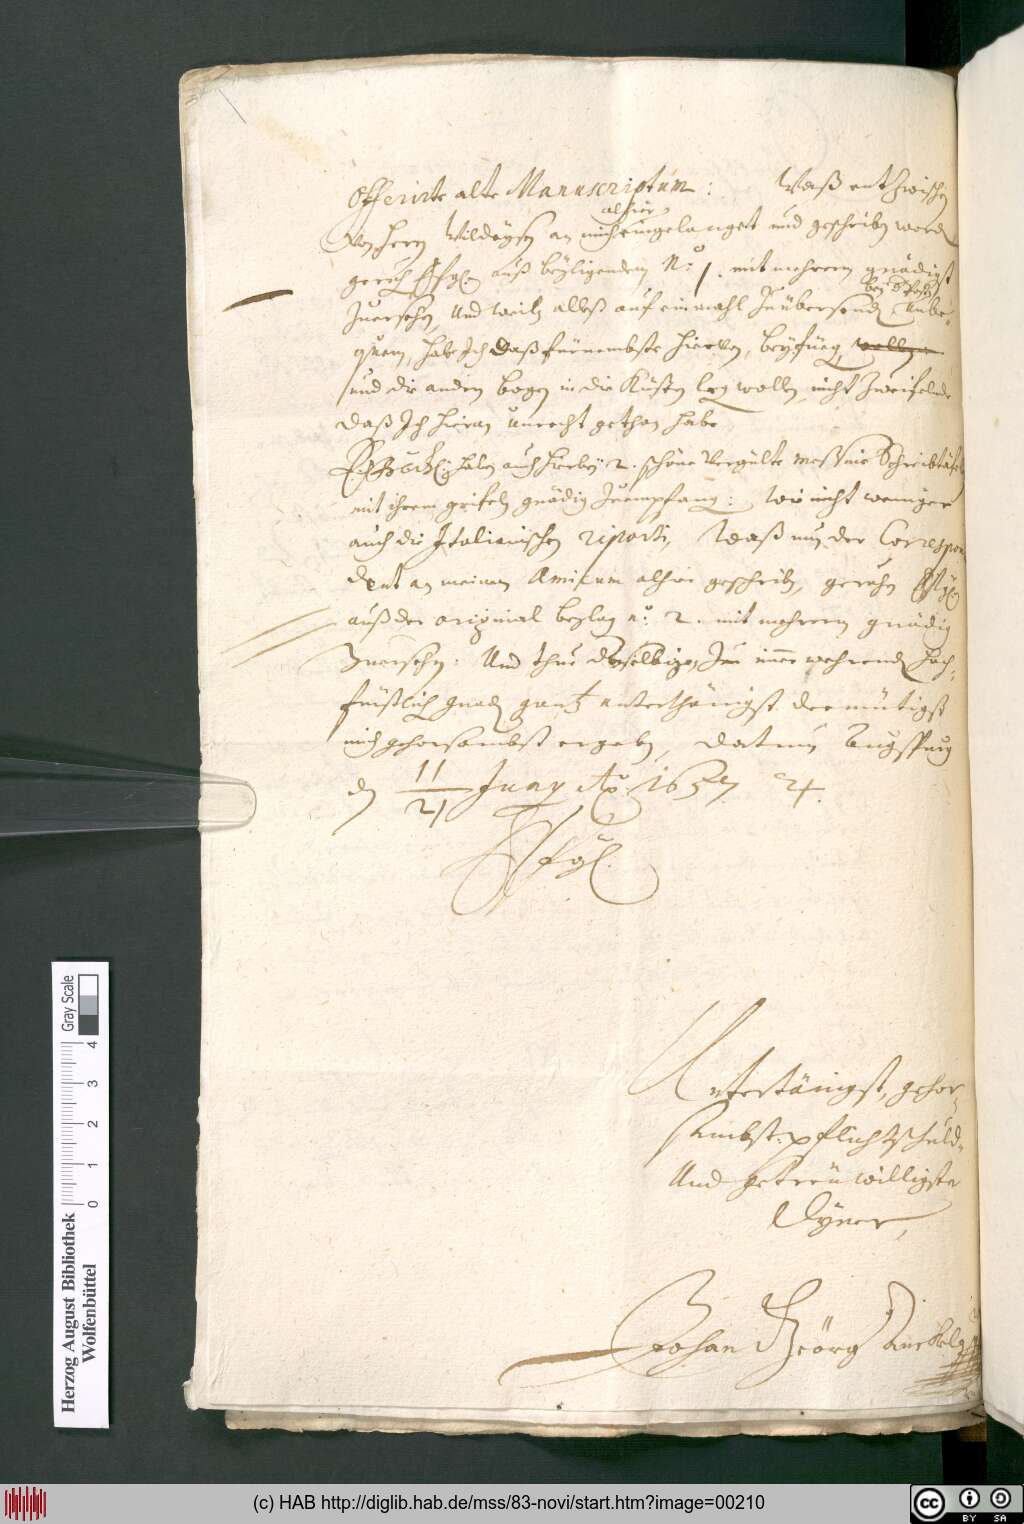 Offerirte alte Manuscriptum: Waß entzwischen
von Herrn Wildeysen an mich alhier eingelanget und geschriben worden
geruhen EFfgl. auß beyligendem No. 1. mit mehrerm gnädigst
Zuersehen, Und weiln alleß auf ein mahl Zuübersenden bey d Post unbe-
quem, habe Ich daß fürnembste hiervon, beyfüeg, wollen
und die andern bogen in die Küsten legen wollen, nicht Zweifelnde
daß Ich hieran unrecht gethan habe
haben auch hierbey 2. schöne vergülte Schreibtäfel
mit ihrem grifeln gnädig Zuempfang: wie nicht weniger
auch die Italienischen riporti, Waß nun der Correspon
dent an meinen Amicum alhier geschriben, geruhen
auß der original beylag no. 2. mit mehrerm gnädig
Zuersehen: Und thue deroselbigen, Zu immerwehrenden hoch-
fürstlich gnaden gantz unterthänigst demütigst
mich gehorsambst ergeben, datum Augspurg
den 11/21 Juny Ao. 1657. 4.
EFfgl.
Untertänigst, gehor-
sambst. pflichtschuld-
Und getreu willigste
Dyner,
Johan Geörg Anckel
Herzog August Bibliothek
Wolfenbüttel
0 1 2 3 4
Gray Scale
(c) HAB http://diglib.hab.de/mss/83-novi/start.htm?image=00210
cc BY SA